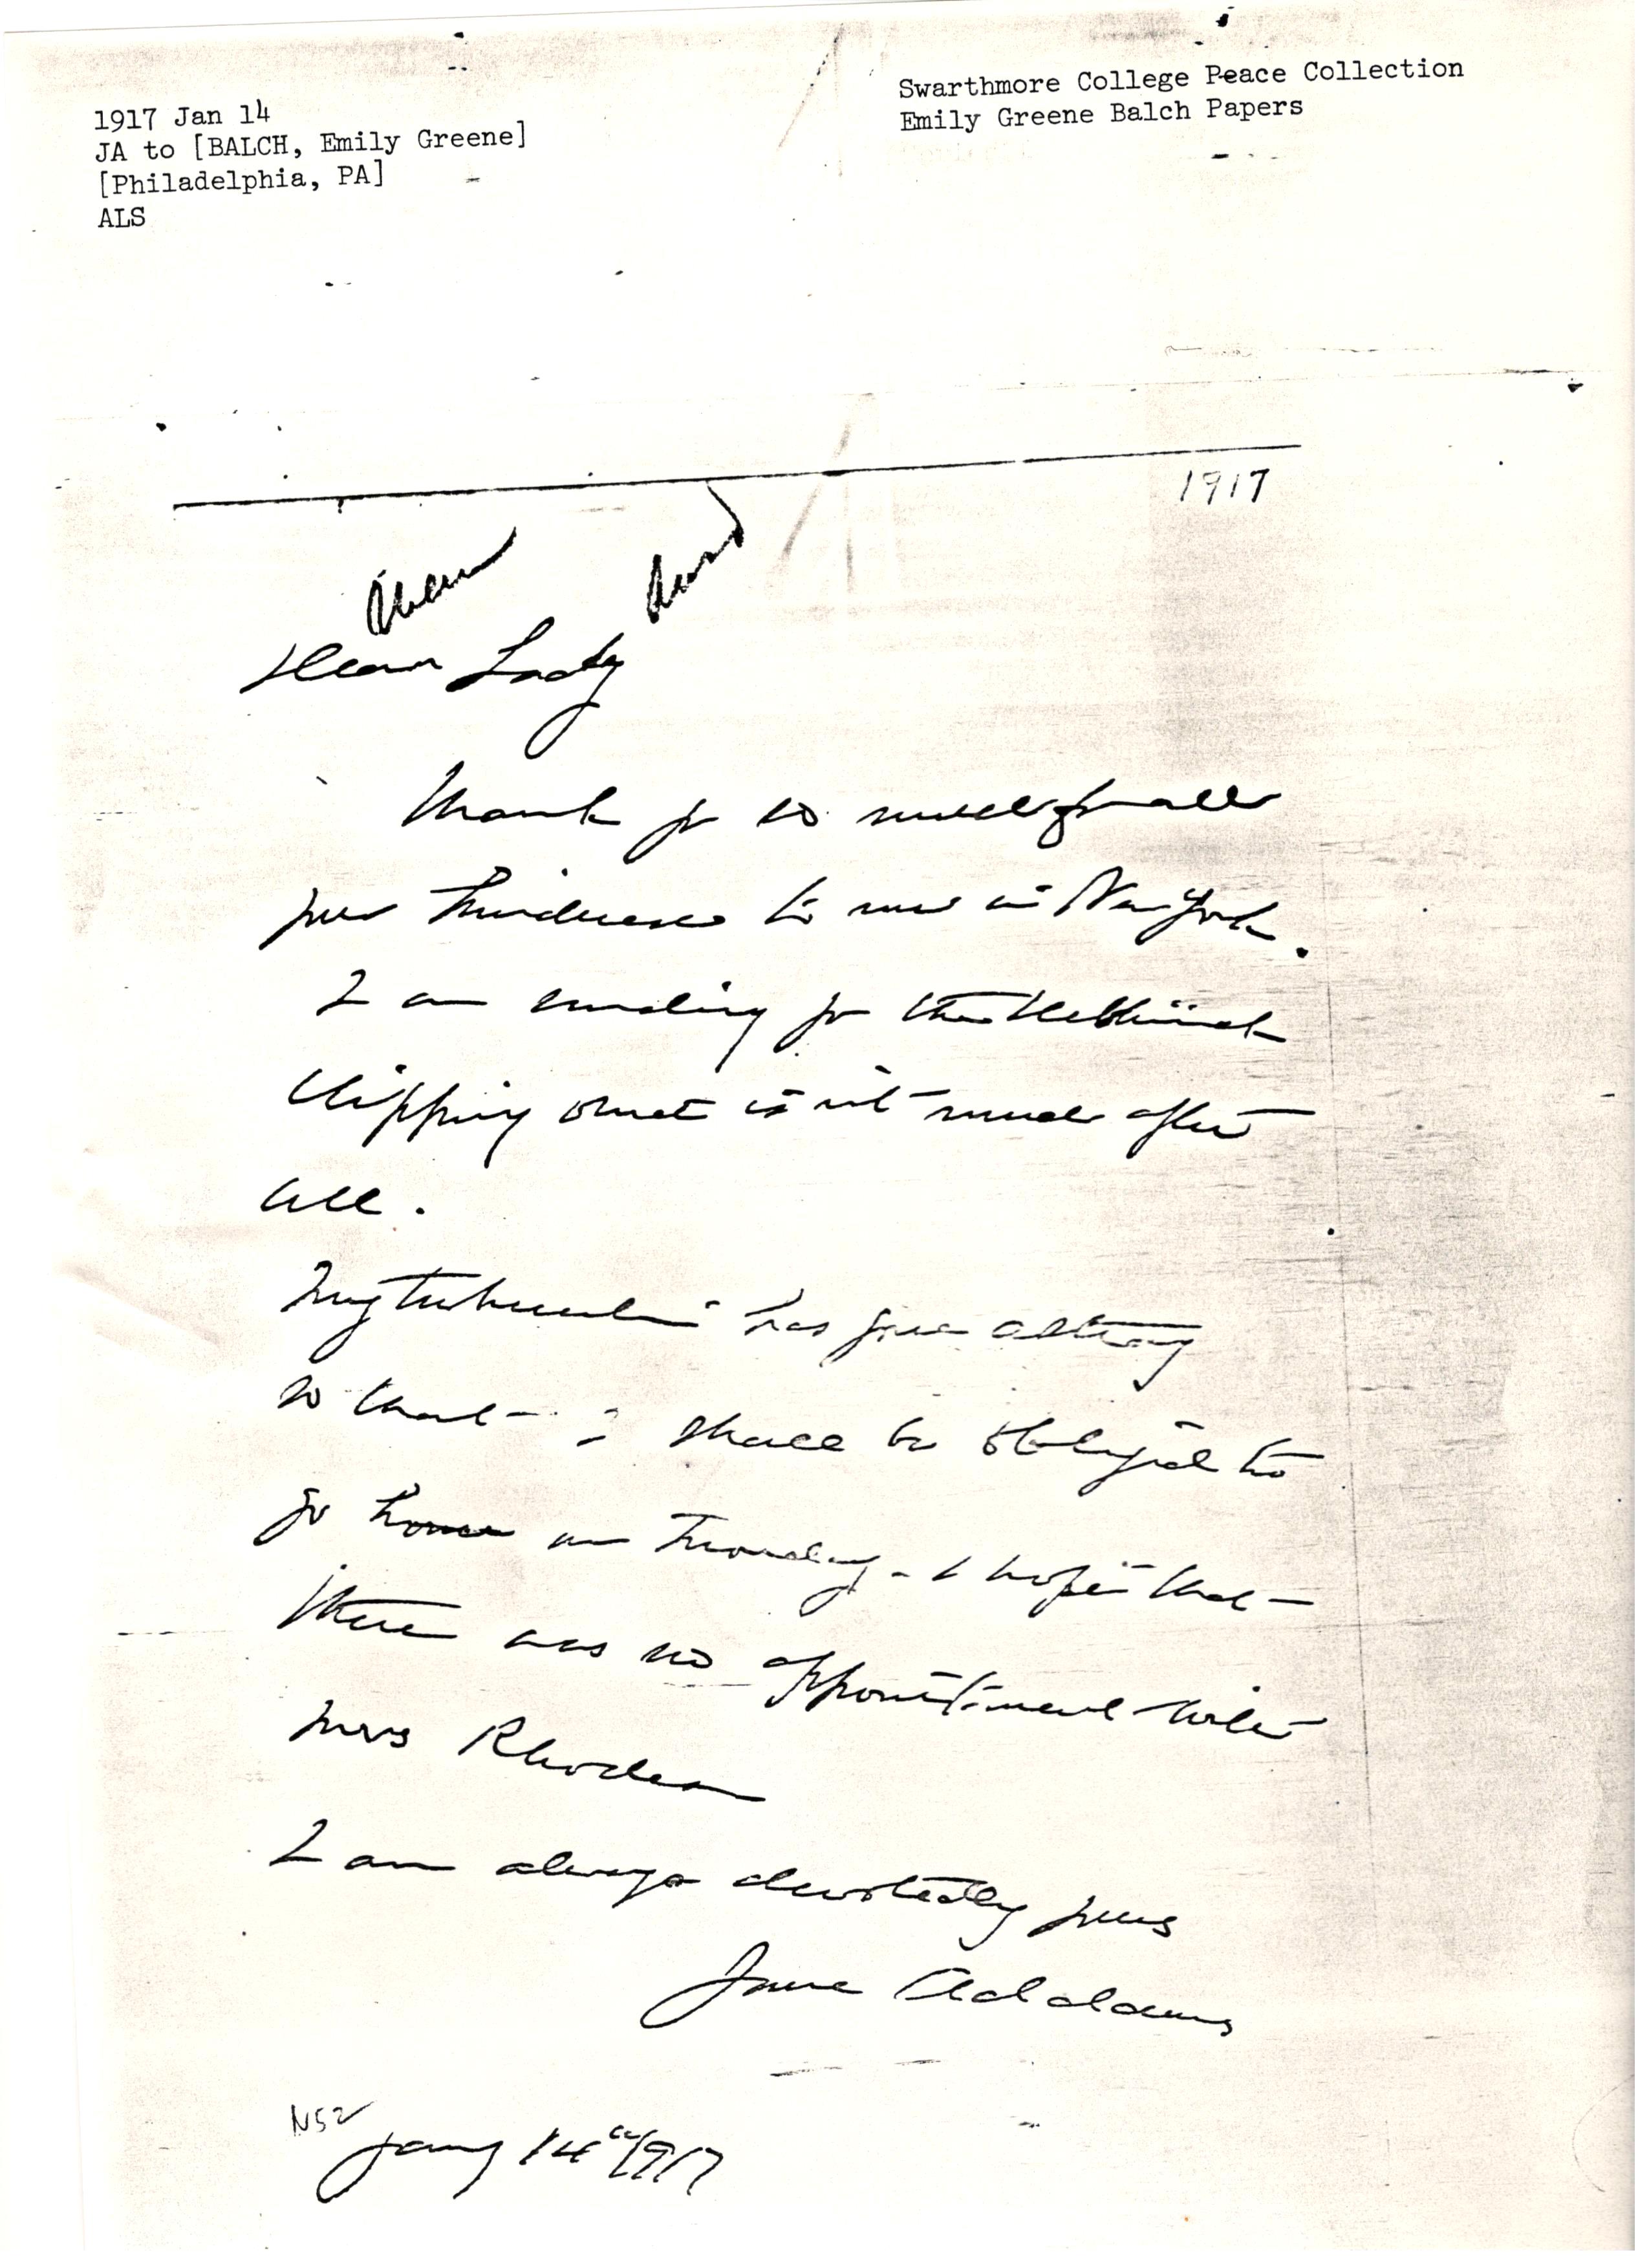 1917 Jan 14
JA to [BALCH, Emily Greene]
[Philadelphia, PA]
ALS
Swarthmore College Peace Collection
Emily Greene Balch Papers
1917
Dear Lady
Thank yo so much for all
your kindness to me in New York.
I am sending yo the
clipping isn't much after
all.
My has gone astray
so that I shall be obliged to
go home on Tuesday - I hope that
there was no appointment with
Mrs Rhodes
I am always devotedly yours
Jane Addams
N52
Jany 14" 1917